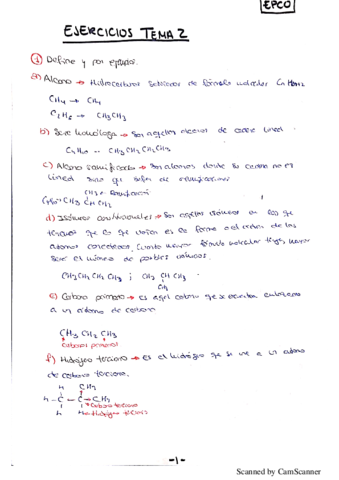 EPCO
EJERCICIOS TEMA 2
1 Define y pon ejemplos.
a) Alcano → Hidrocarburos saturados de fórmula molecular
CH4 → CH4
C2H6 → CH3CH3
b) Serie homóloga → Son aquellos alcanos de cadena lineal
CH3CH2CH2CH3
c) Alcano ramificado → Son alcanos donde su cadena no es
lineal sino que de ramificaciones
CH3 ← Ramificación
CH3 CH CH3
d) Isómeros constitucionales → Son aquellos isómeros en los que
lo que es la forma o el orden de los
átomos conectados. Cuanto mayor fórmula molecular tenga, mayor
será el número de posibles isómeros.
CH3CH2CH2CH3 ; CH3 CH CH3
CH3
e) Carbono primario → es aquel carbono que se encuentra enlazado
a un átomo de carbono
CH3 CH2 CH3
Carbono primario
f) Hidrógeno terciario → es el hidrógeno que se une a un átomo
de carbono terciario.
H CH3
H - C - C - CH3
Carbono terciario
H H → Hidrógeno terciario
-1-
Scanned by CamScanner